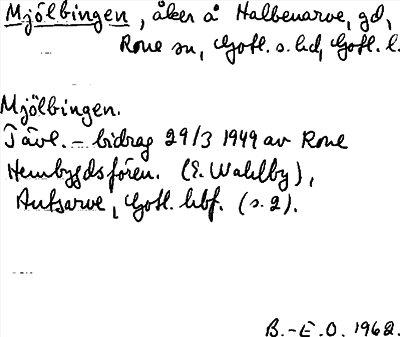 Mjölbingen, åker å Halbenarve, gd,
Rone sn, Gotl. s. hd, Gotl. l.
Mjölbingen.
Tävl. - bidrag 29/3 1949 av Rone
Hembygdsfören. (E. Wahlby),
Autsarve, Gotl. hbf. (s. 2).
B.-E.O. 1962.